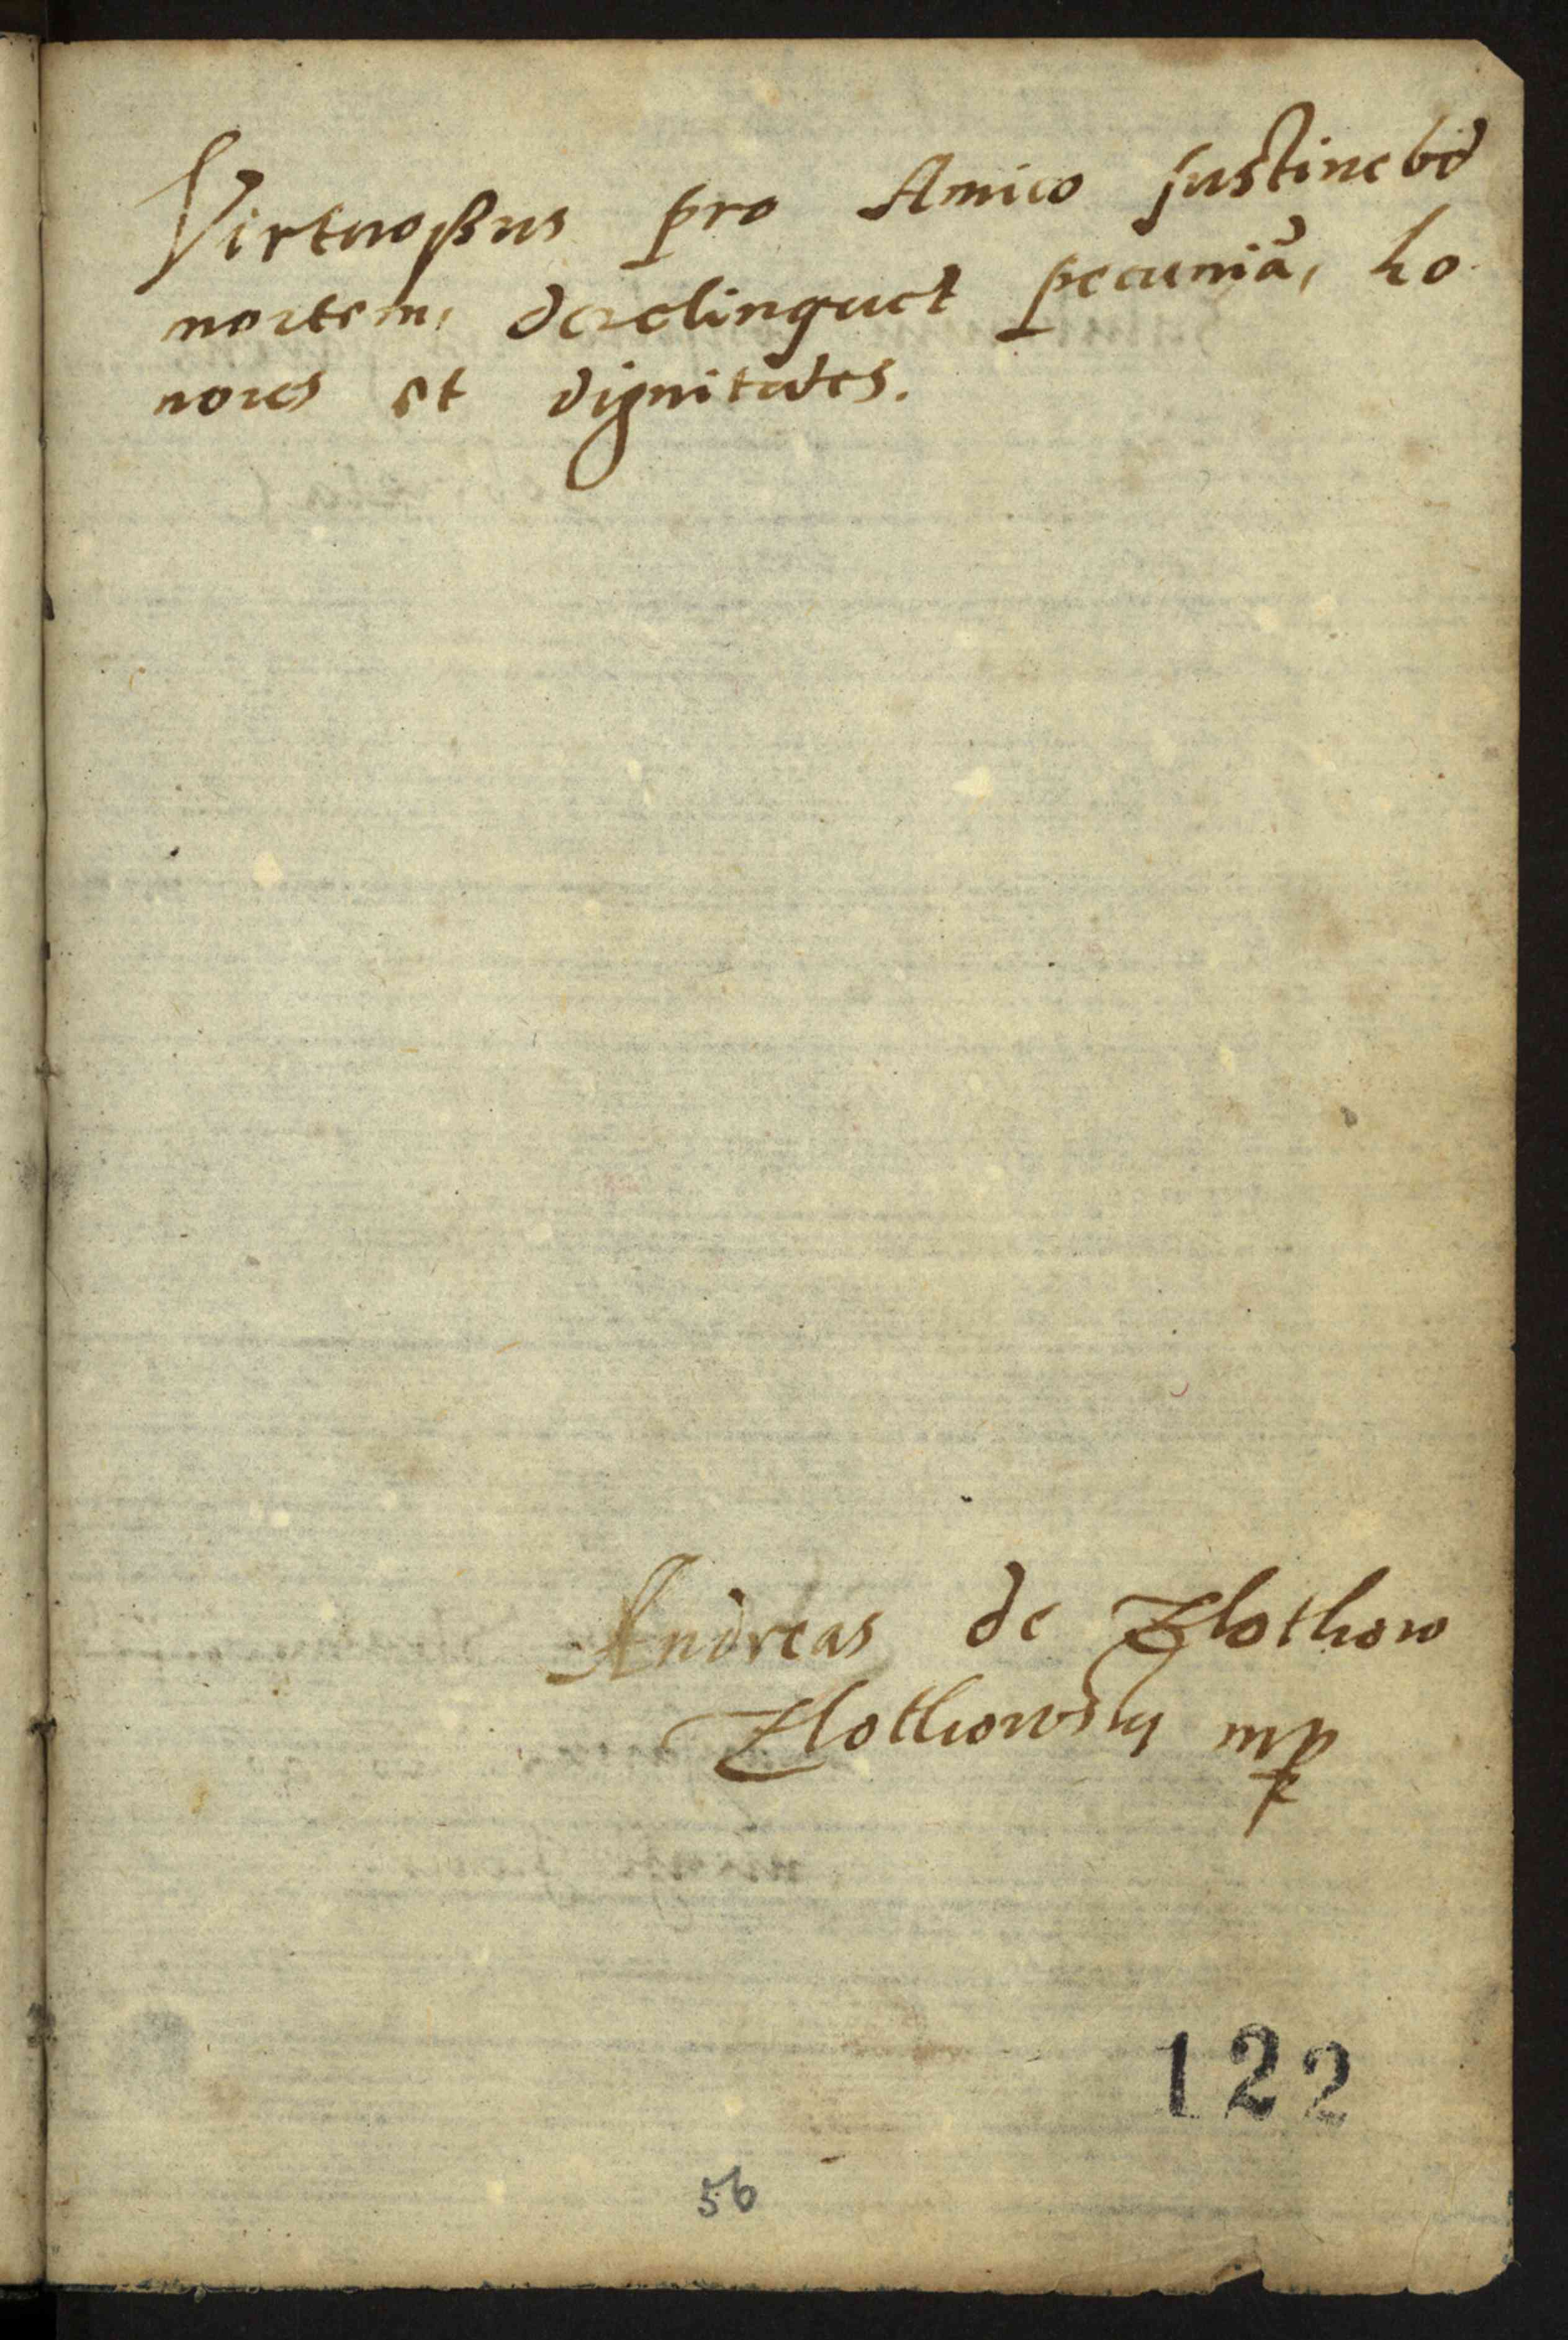 Virtuoßus pro Amico sustinebit
mortem, derelinquet pecuniã, ho
nores et dignitates.
Andreas de Zlothow
Zlothowsky mp
122
56